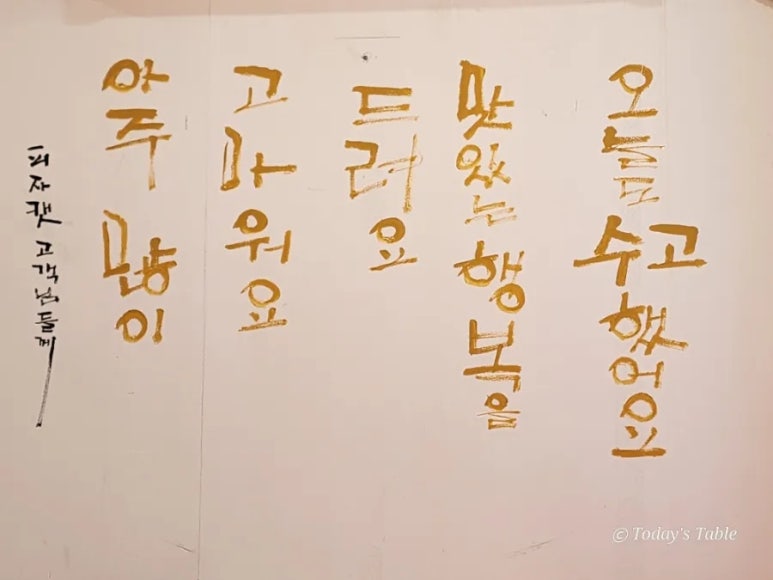 오늘도 수고했어요
맛있는 행복을
드려요
고마워요
아주 많이
피자캣 고객님들께
© Today's Table